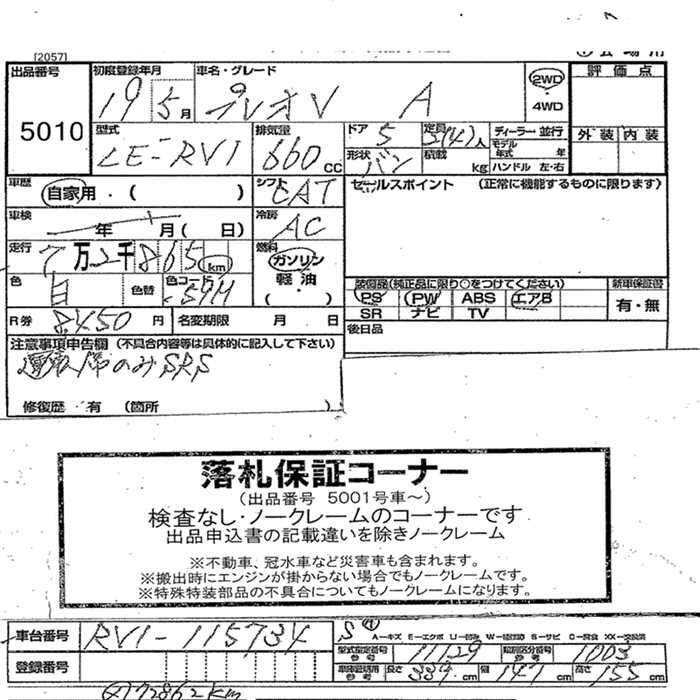 [2057]
出品番号 初度登録年月 車名・グレード 2WD 評価点
5010 19 5月 プレオV A 4WD
型式 排気量 ドア 5 定員 ディーラー 並行 外装 内装
LE-RV1 660CC 形状 バン 積載 kg モデル年式 年 ハンドル 左・右
車歴 自家用・( ) シフト CAT セールスポイント (正常に機能するものに限ります)
車検 年 月( 日) 冷房 AC
走行 7万2千865km 燃料 ガソリン 軽油 ( )
色 白 色替 色コード 装備品(純正品に限り○をつけてください) 新車保証書
PS PW ABS エアB 有・無
SR ナビ TV
R券 8450円 名変期限 月 日 後日品
注意事項申告欄 (不具合内容等は具体的に記入して下さい)
運転席のみSRS
修復歴 有 (箇所 )
落札保証コーナー
(出品番号 5001号車~)
検査なし・ノークレームのコーナーです
出品申込書の記載違いを除きノークレーム
※不動車、冠水車など災害車も含まれます。
※搬出時にエンジンが掛からない場合でもノークレームです。
※特殊特装部品の不具合についてもノークレームになります。
車台番号 RV1-115734 S ① A-キズ E-エクボ
型式指定番号 参考 11129 類別区分番号 参考 1003
登録番号 参考 長さ 339cm 幅 147cm 高さ 155cm
72862km